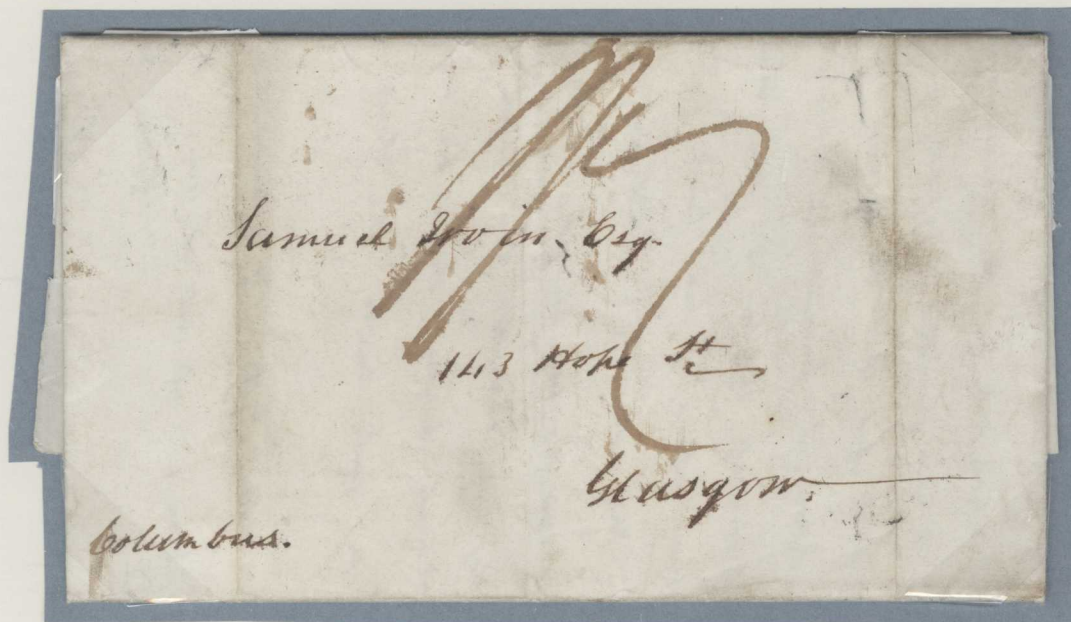 Samuel Irvin, Esqr.
143 Hope St.
Glasgow.
Columbus.